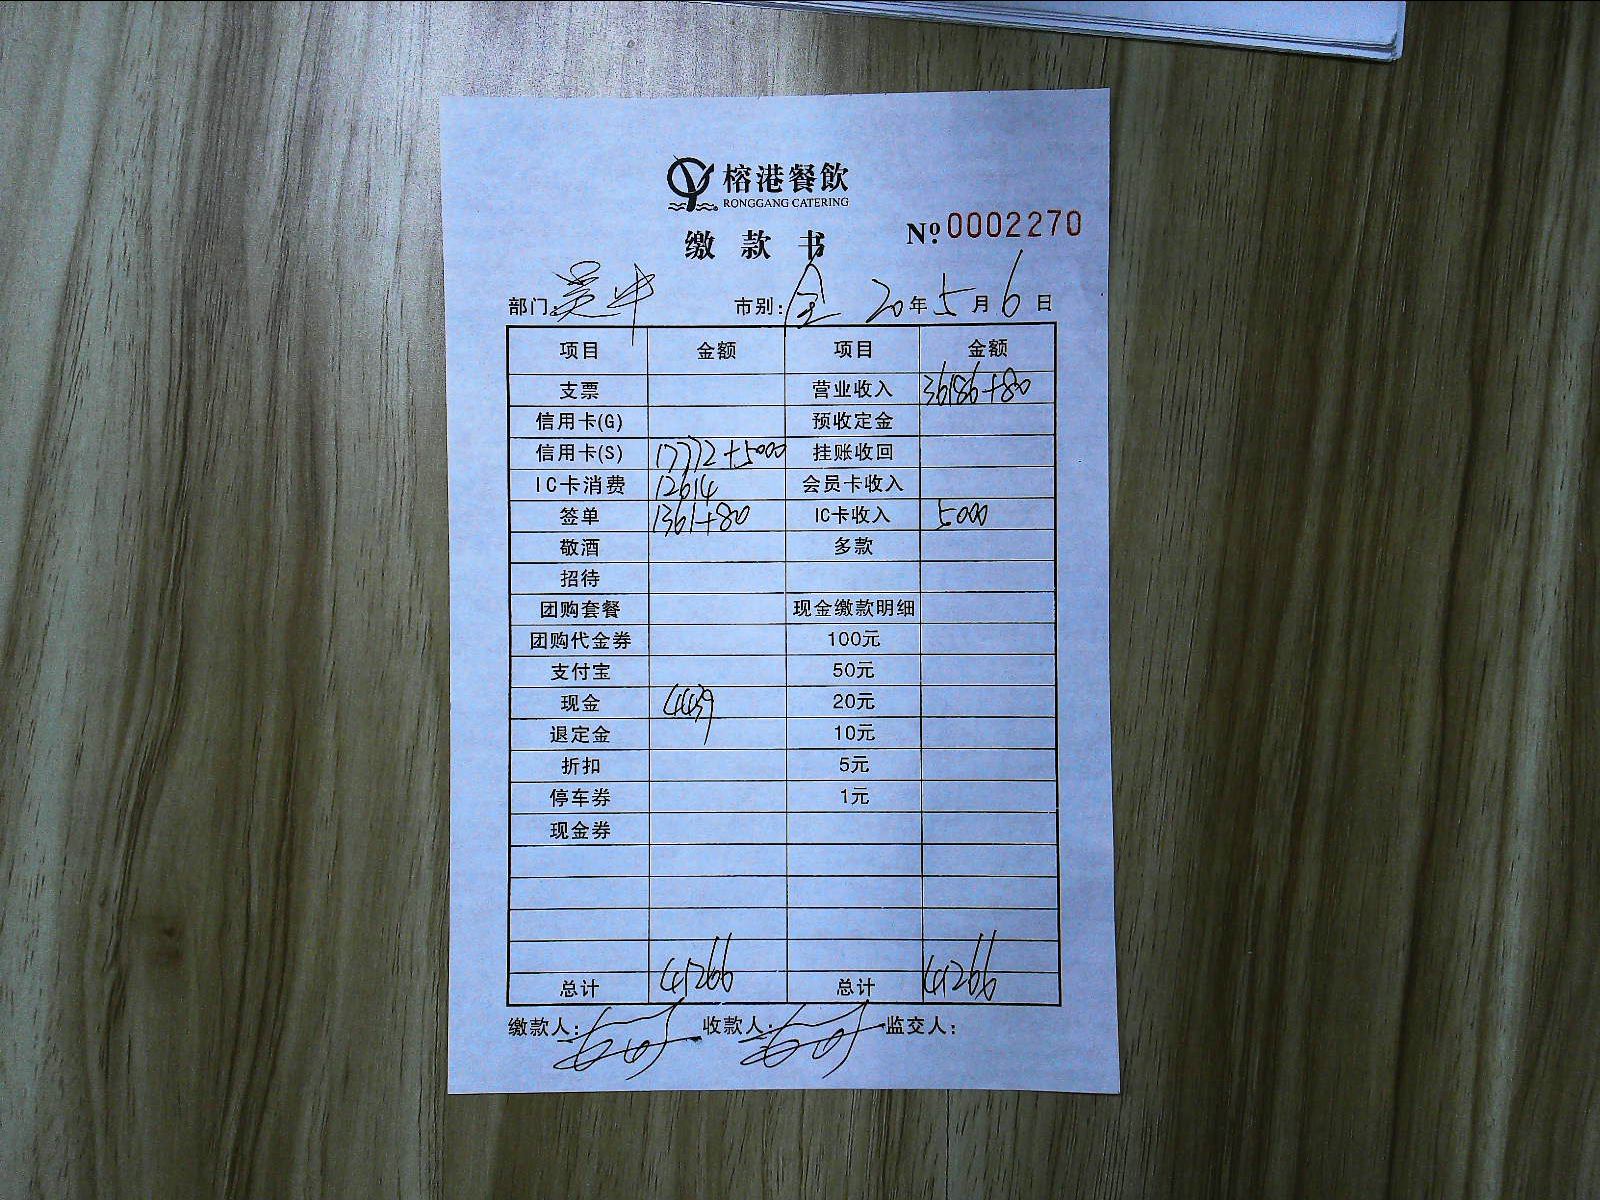 榕港餐飲
RONGGANG CATERING
缴款书 Nº 0002270
部门: 吴中 市别: 全 20年5月6日
项目 金额 项目 金额
支票 营业收入 36186+80
信用卡(G) 预收定金
信用卡(S) 17772+5000 挂账收回
IC卡消费 12614 会员卡收入
签单 1361+80 IC卡收入 5000
敬酒 多款
招待
团购套餐 现金缴款明细
团购代金券 100元
支付宝 50元
现金 4439 20元
退定金 10元
折扣 5元
停车券 1元
现金券
总计 41266 总计 41266
缴款人: 收款人: 监交人: